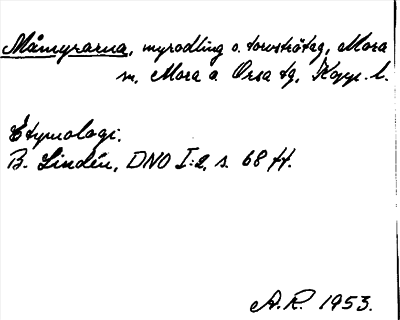 Måmyrarna, myrodling o. torvströtag, Mora
sn, Mora o. Orsa tg, Kopp. l.
Etymologi:
B. Lindén, DNO I:2, s. 68 ff.
A.R. 1953.